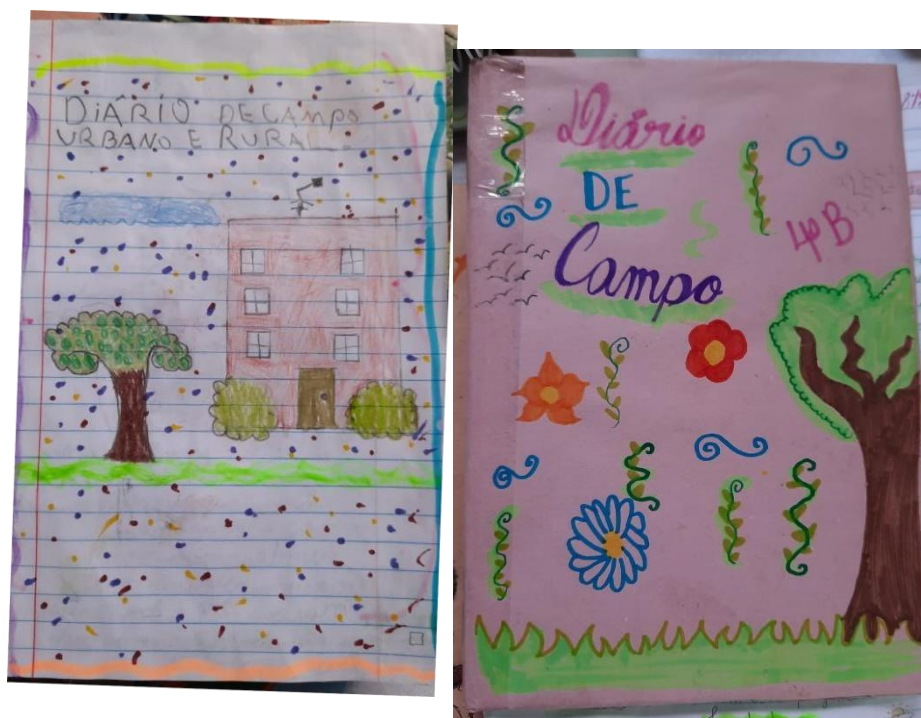 DIÁRIO DE CAMPO
URBANO E RURAL
Diário
DE
Campo
4º B